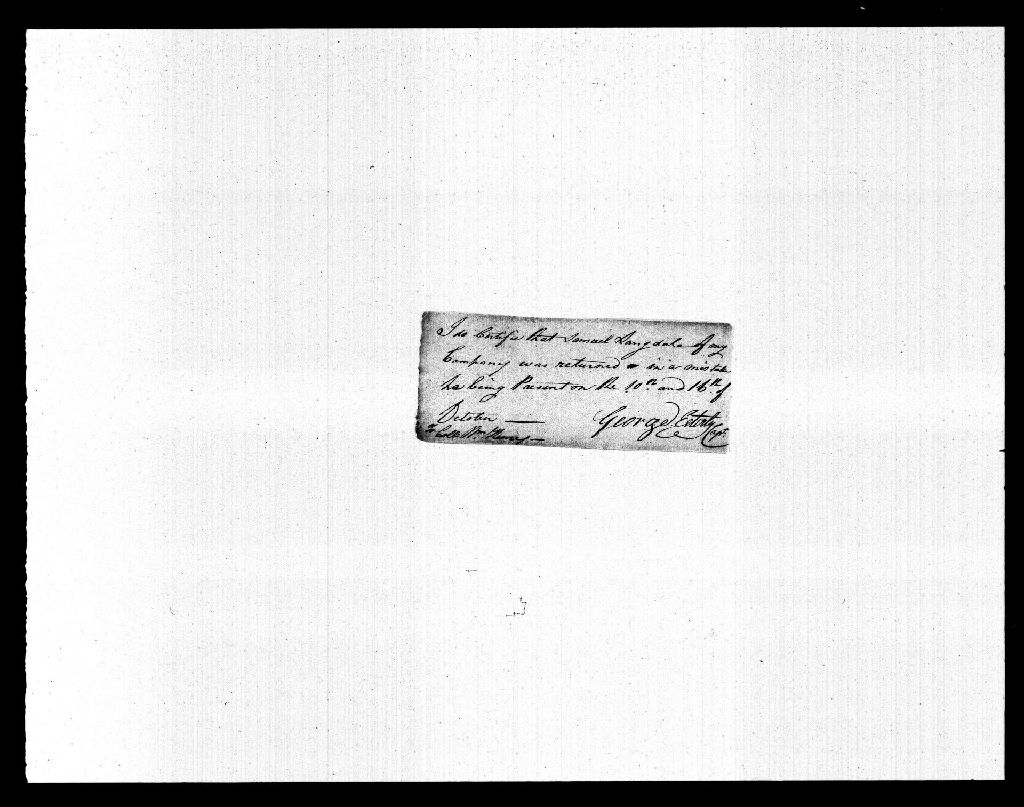 I do Certify that Samuel Langdale of my
Company was returned in a mistake
he being Present on the 10th and 16th of
October
George Capt
To Coll Wm